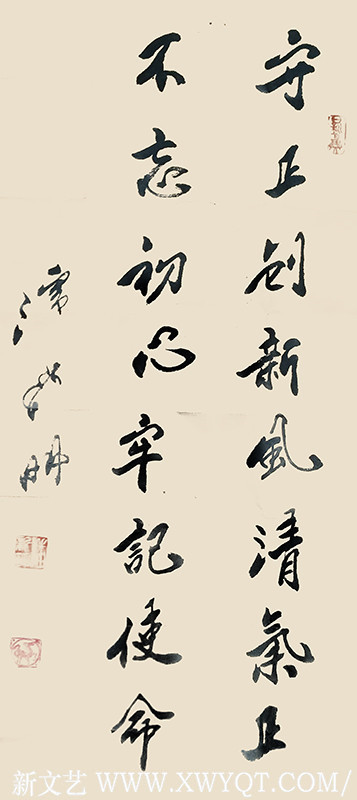 守正创新风清氣正
不忘初心牢記使命
新文艺 WWW.XWYQT.COM/